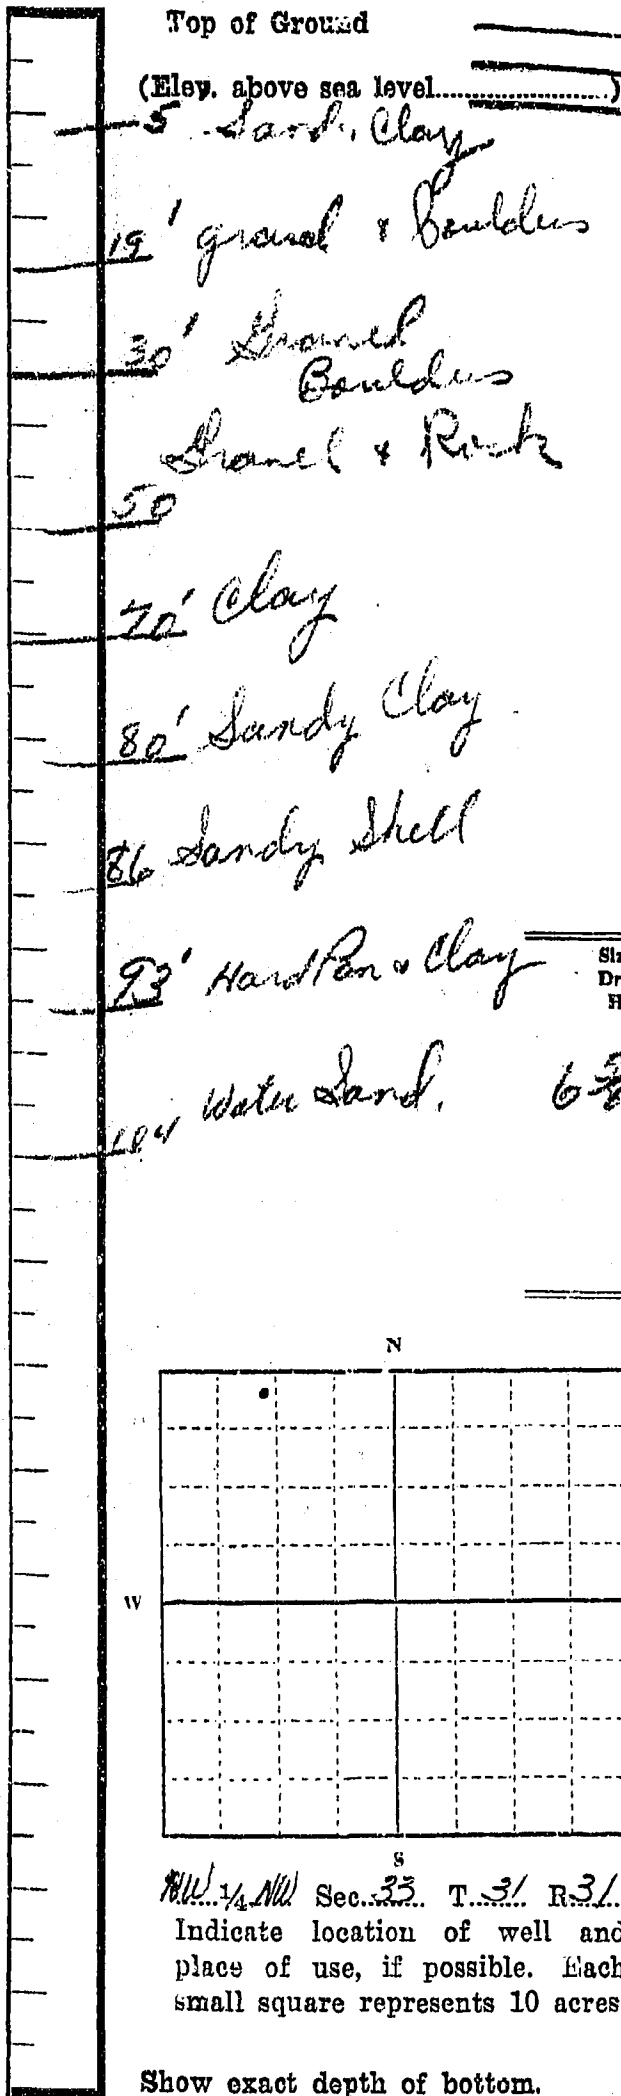 Top of Ground
(Elev. above sea level....................)
5 Sandy Clay
19' gravel & Boulders
30' Gravel
Boulders
Gravel & Rock
50
70' Clay
80' Sandy Clay
86 Sandy Shell
93' Hard Pan & Clay
Siz
Dr
H
Water Sand.
6 5/8
104
N
W
S
NW 1/4 NW Sec. 33 T. 31 R. 31
Indicate location of well and
place of use, if possible. Each
small square represents 10 acres
Show exact depth of bottom.